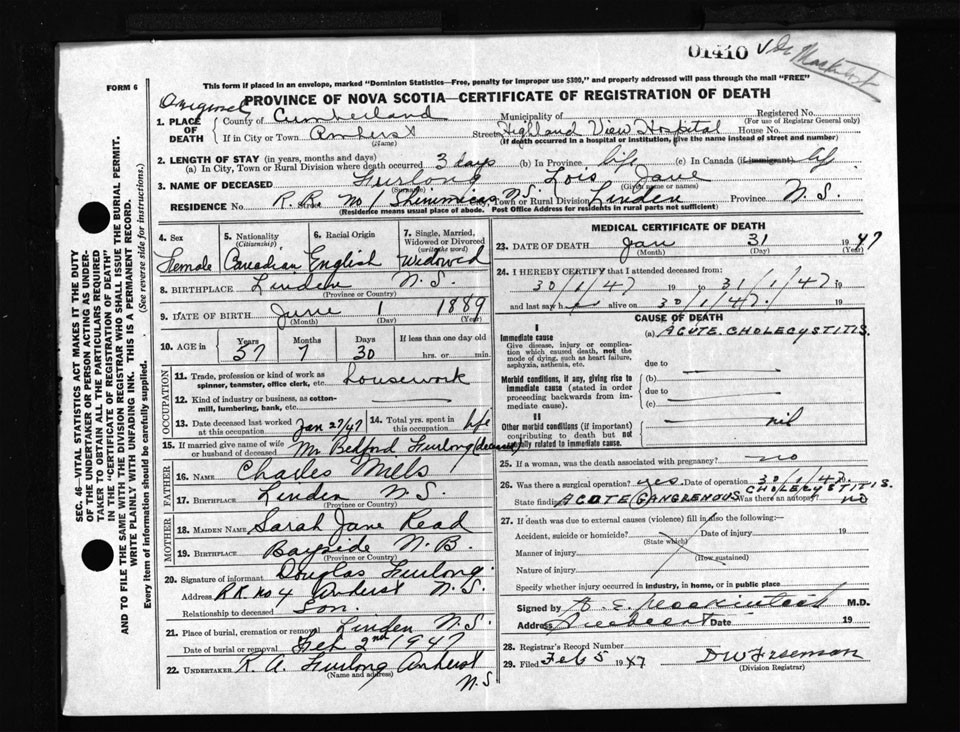 01410
FORM 6
This form if placed in an envelope, marked "Dominion Statistics—Free, penalty for improper use $300," and properly addressed will pass through the mail "FREE"
Original
PROVINCE OF NOVA SCOTIA—CERTIFICATE OF REGISTRATION OF DEATH
1. PLACE OF DEATH County of Cumberland Municipality of Registered No.
(For use of Registrar General only)
If in City or Town Amherst Street Highland View Hospital House No.
(Name) (If death occurred in a hospital or institution, give the name instead of street and number)
2. LENGTH OF STAY (in years, months and days)
(a) In City, Town or Rural Division where death occurred 3 days (b) In Province life (c) In Canada (if immigrant) life
3. NAME OF DECEASED Furlong Lois Jane
(Surname) (Given name or names)
RESIDENCE No. R.R. No 1 Shinimicas N.S. City, Town or Rural Division Linden Province N.S.
(Residence means usual place of abode. Post Office Address for residents in rural parts not sufficient)
4. Sex Female
5. Nationality (Citizenship) Canadian
6. Racial Origin English
7. Single, Married, Widowed or Divorced (write the word) Widowed
8. BIRTHPLACE Linden N.S.
(Province or Country)
9. DATE OF BIRTH June 1 1889
(Month) (Day) (Year)
10. AGE in Years 57 Months 7 Days 30 If less than one day old hrs. or min.
OCCUPATION
11. Trade, profession or kind of work as spinner, teamster, office clerk, etc. housework
12. Kind of industry or business, as cotton-mill, lumbering, bank, etc.
13. Date deceased last worked at this occupation Jan 27/47 14. Total yrs. spent in this occupation life
15. If married give name of wife or husband of deceased Mr Bedford Furlong (deceased)
FATHER
16. Name Charles Mills
17. Birthplace Linden N.S.
MOTHER
18. Maiden Name Sarah Jane Read
19. Birthplace Bayside N.B.
(Province or Country)
20. Signature of informant Douglas Furlong
Address R.R. no 4 Amherst N.S.
Relationship to deceased Son.
21. Place of burial, cremation or removal Linden N.S.
Date of burial or removal Feb 2nd 1947
22. UNDERTAKER K. A. Furlong Amherst
(Name and address)
N.S
MEDICAL CERTIFICATE OF DEATH
23. DATE OF DEATH Jan 31 1947
(Month) (Day) (Year)
24. I HEREBY CERTIFY that I attended deceased from:
30/1/47 19 to 31/1/47 19
and last saw h er alive on 30/1/47. 19
CAUSE OF DEATH
I
Immediate cause
Give disease, injury or complication which caused death, not the mode of dying, such as heart failure, asphyxia, asthenia, etc.
(a) ACUTE CHOLECYSTITIS.
due to
Morbid conditions, if any, giving rise to immediate cause (stated in order proceeding backwards from immediate cause).
(b)
due to
(c)
II
Other morbid conditions (if important) contributing to death but not causally related to immediate cause.
nil
25. If a woman, was the death associated with pregnancy? no
26. Was there a surgical operation? yes. Date of operation 30/1/47.
State findings ACUTE GANGRENOUS CHOLECYSTITIS. Was there an autopsy? no
27. If death was due to external causes (violence) fill in also the following:—
Accident, suicide or homicide? Date of injury 19
(State which)
Manner of injury
(How sustained)
Nature of injury
Specify whether injury occurred in industry, in home, or in public place
Signed by M.D.
Address Date 19
28. Registrar's Record Number
29. Filed Feb 5 1947 D W Freeman
(Division Registrar)
SEC. 46—VITAL STATISTICS ACT MAKES IT THE DUTY
OF THE UNDERTAKER OR PERSON ACTING AS UNDERTAKER
TO OBTAIN ALL THE PARTICULARS REQUIRED
IN THE "CERTIFICATE OF REGISTRATION OF DEATH"
AND TO FILE THE SAME WITH THE DIVISION REGISTRAR WHO SHALL ISSUE THE BURIAL PERMIT.
WRITE PLAINLY WITH UNFADING INK. THIS IS A PERMANENT RECORD.
Every item of information should be carefully supplied. (See reverse side for instructions.)